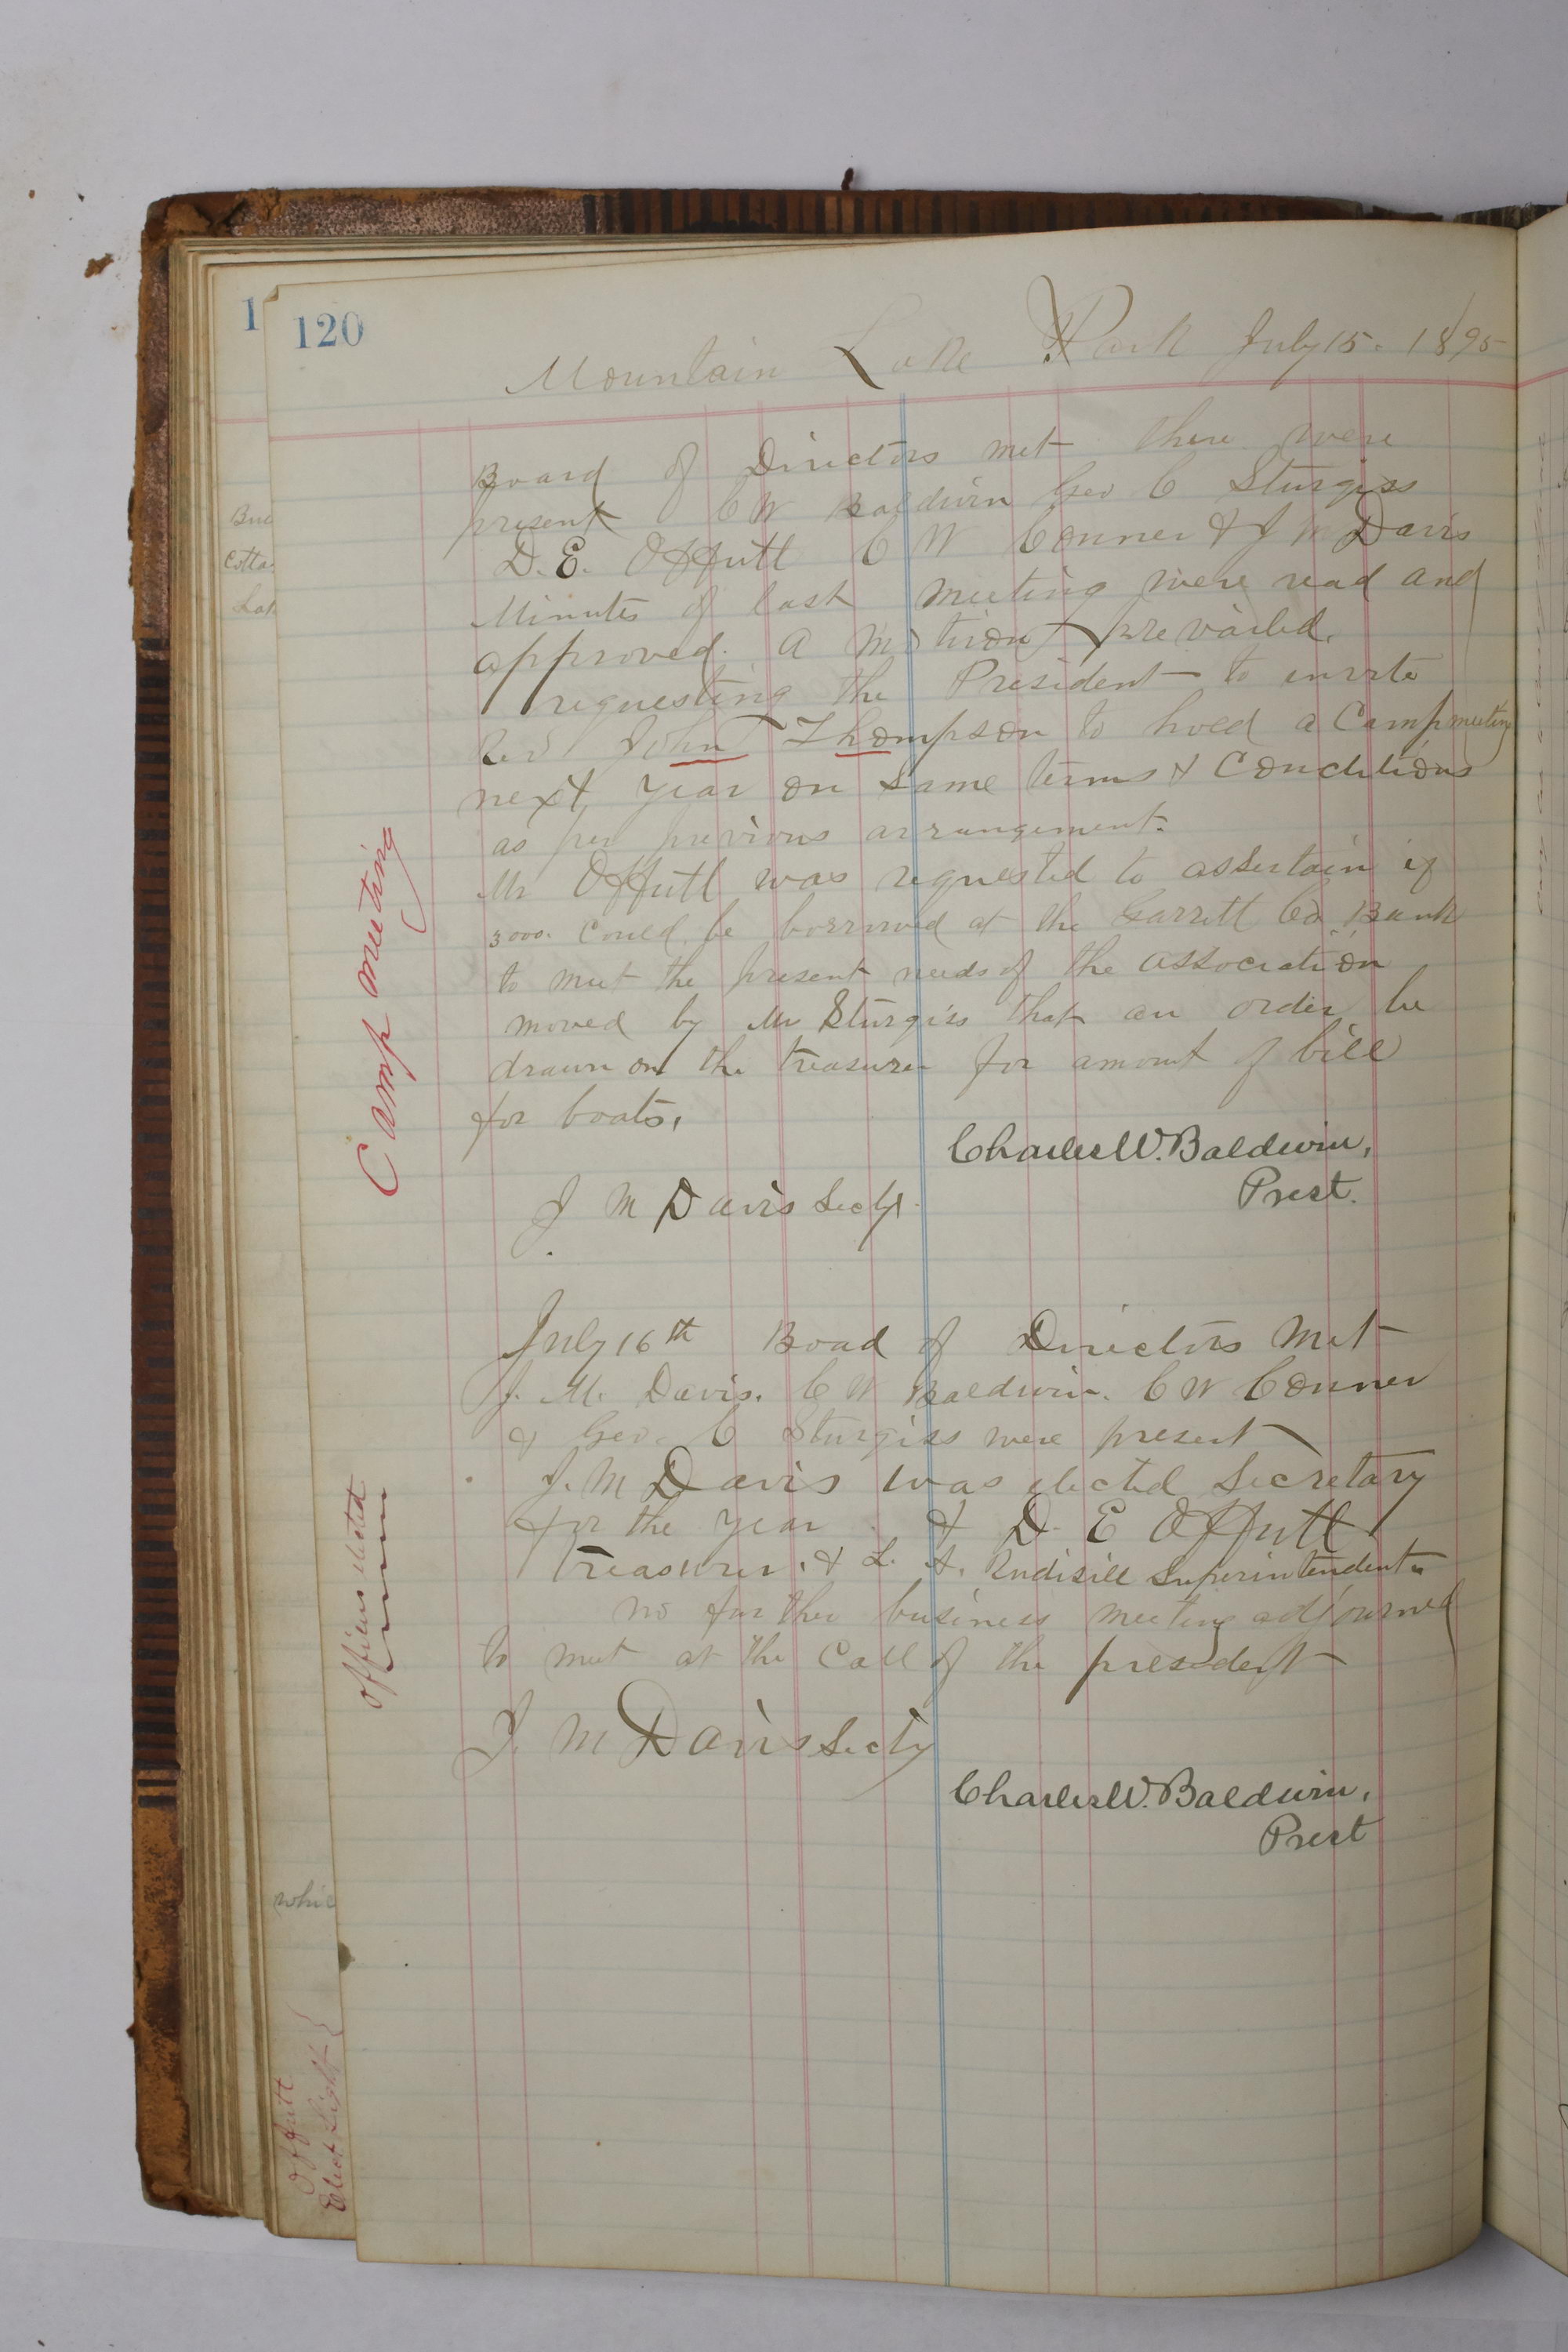 1
120
Mountain Lake Park July 15. 1895
Board of Directors met there were
present C W Baldwin Geo C Sturgiss
D. E. Offutt C W Conner & J M Davis
Minutes of last meeting were read and
approved. A motion prevailed.
requesting the President to invite
Rev John Thompson to hold a Camp meeting
next year on same terms & Conditions
as per previous arrangement.
Mr Offutt was requested to assertain if
3000. Could be borrowed at the Garrett Co Bank
to meet the present needs of the association
moved by Mr Sturgiss that an order be
drawn on the treasurer for amount of bill
for boats.
Charles W. Baldwin,
Prest.
J M Davis Secty
Camp meeting
July 16th Boad of Directors Met
J. M. Davis. C W Baldwin. C W Conner
& Geo. C Sturgiss were present
J. M Davis was elected Secretary
for the year & D. E Offutt
Treasurer. & L. A. Rudisill Superintendent
no further business meeting adjourned
to meet at the Call of the president
J. M Davis Secty
Charles W. Baldwin,
Prest
officers elected
Cotta
Lot
whic
Offutt
Elect Light